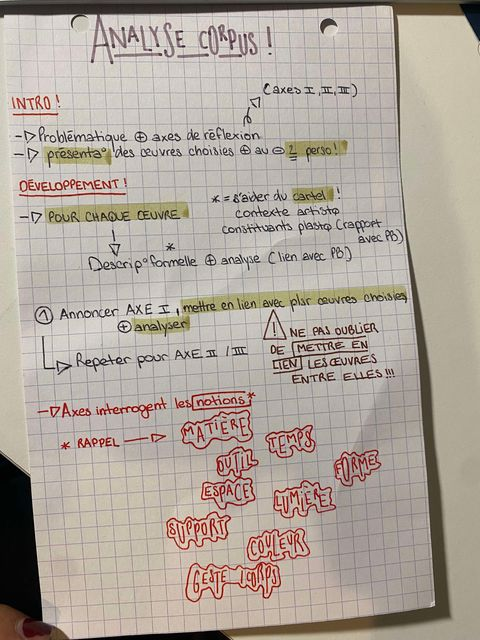 ANALYSE CORPUS !
(axes I, II, III)
INTRO !
-> Problématique ⊕ axes de réflexion
-> présentaº des œuvres choisies ⊕ au ⊖ 2 perso !
DÉVELOPPEMENT !
-> POUR CHAQUE ŒUVRE
* = s'aider du cartel !
contexte artistq
constituants plastq (rapport avec PB)
*
Descripº formelle ⊕ analyse (lien avec PB)
① Annoncer AXE I, mettre en lien avec plsr œuvres choisies
⊕ analyser
-> Repeter pour AXE II / III
! NE PAS OUBLIER
DE METTRE EN
LIEN LES ŒUVRES
ENTRE ELLES !!!
-> Axes interrogent les notions*
* RAPPEL ->
MATIÈRE
TEMPS
OUTIL
FORME
ESPACE
LUMIÈRE
SUPPORT
COULEUR
GESTE / CORPS